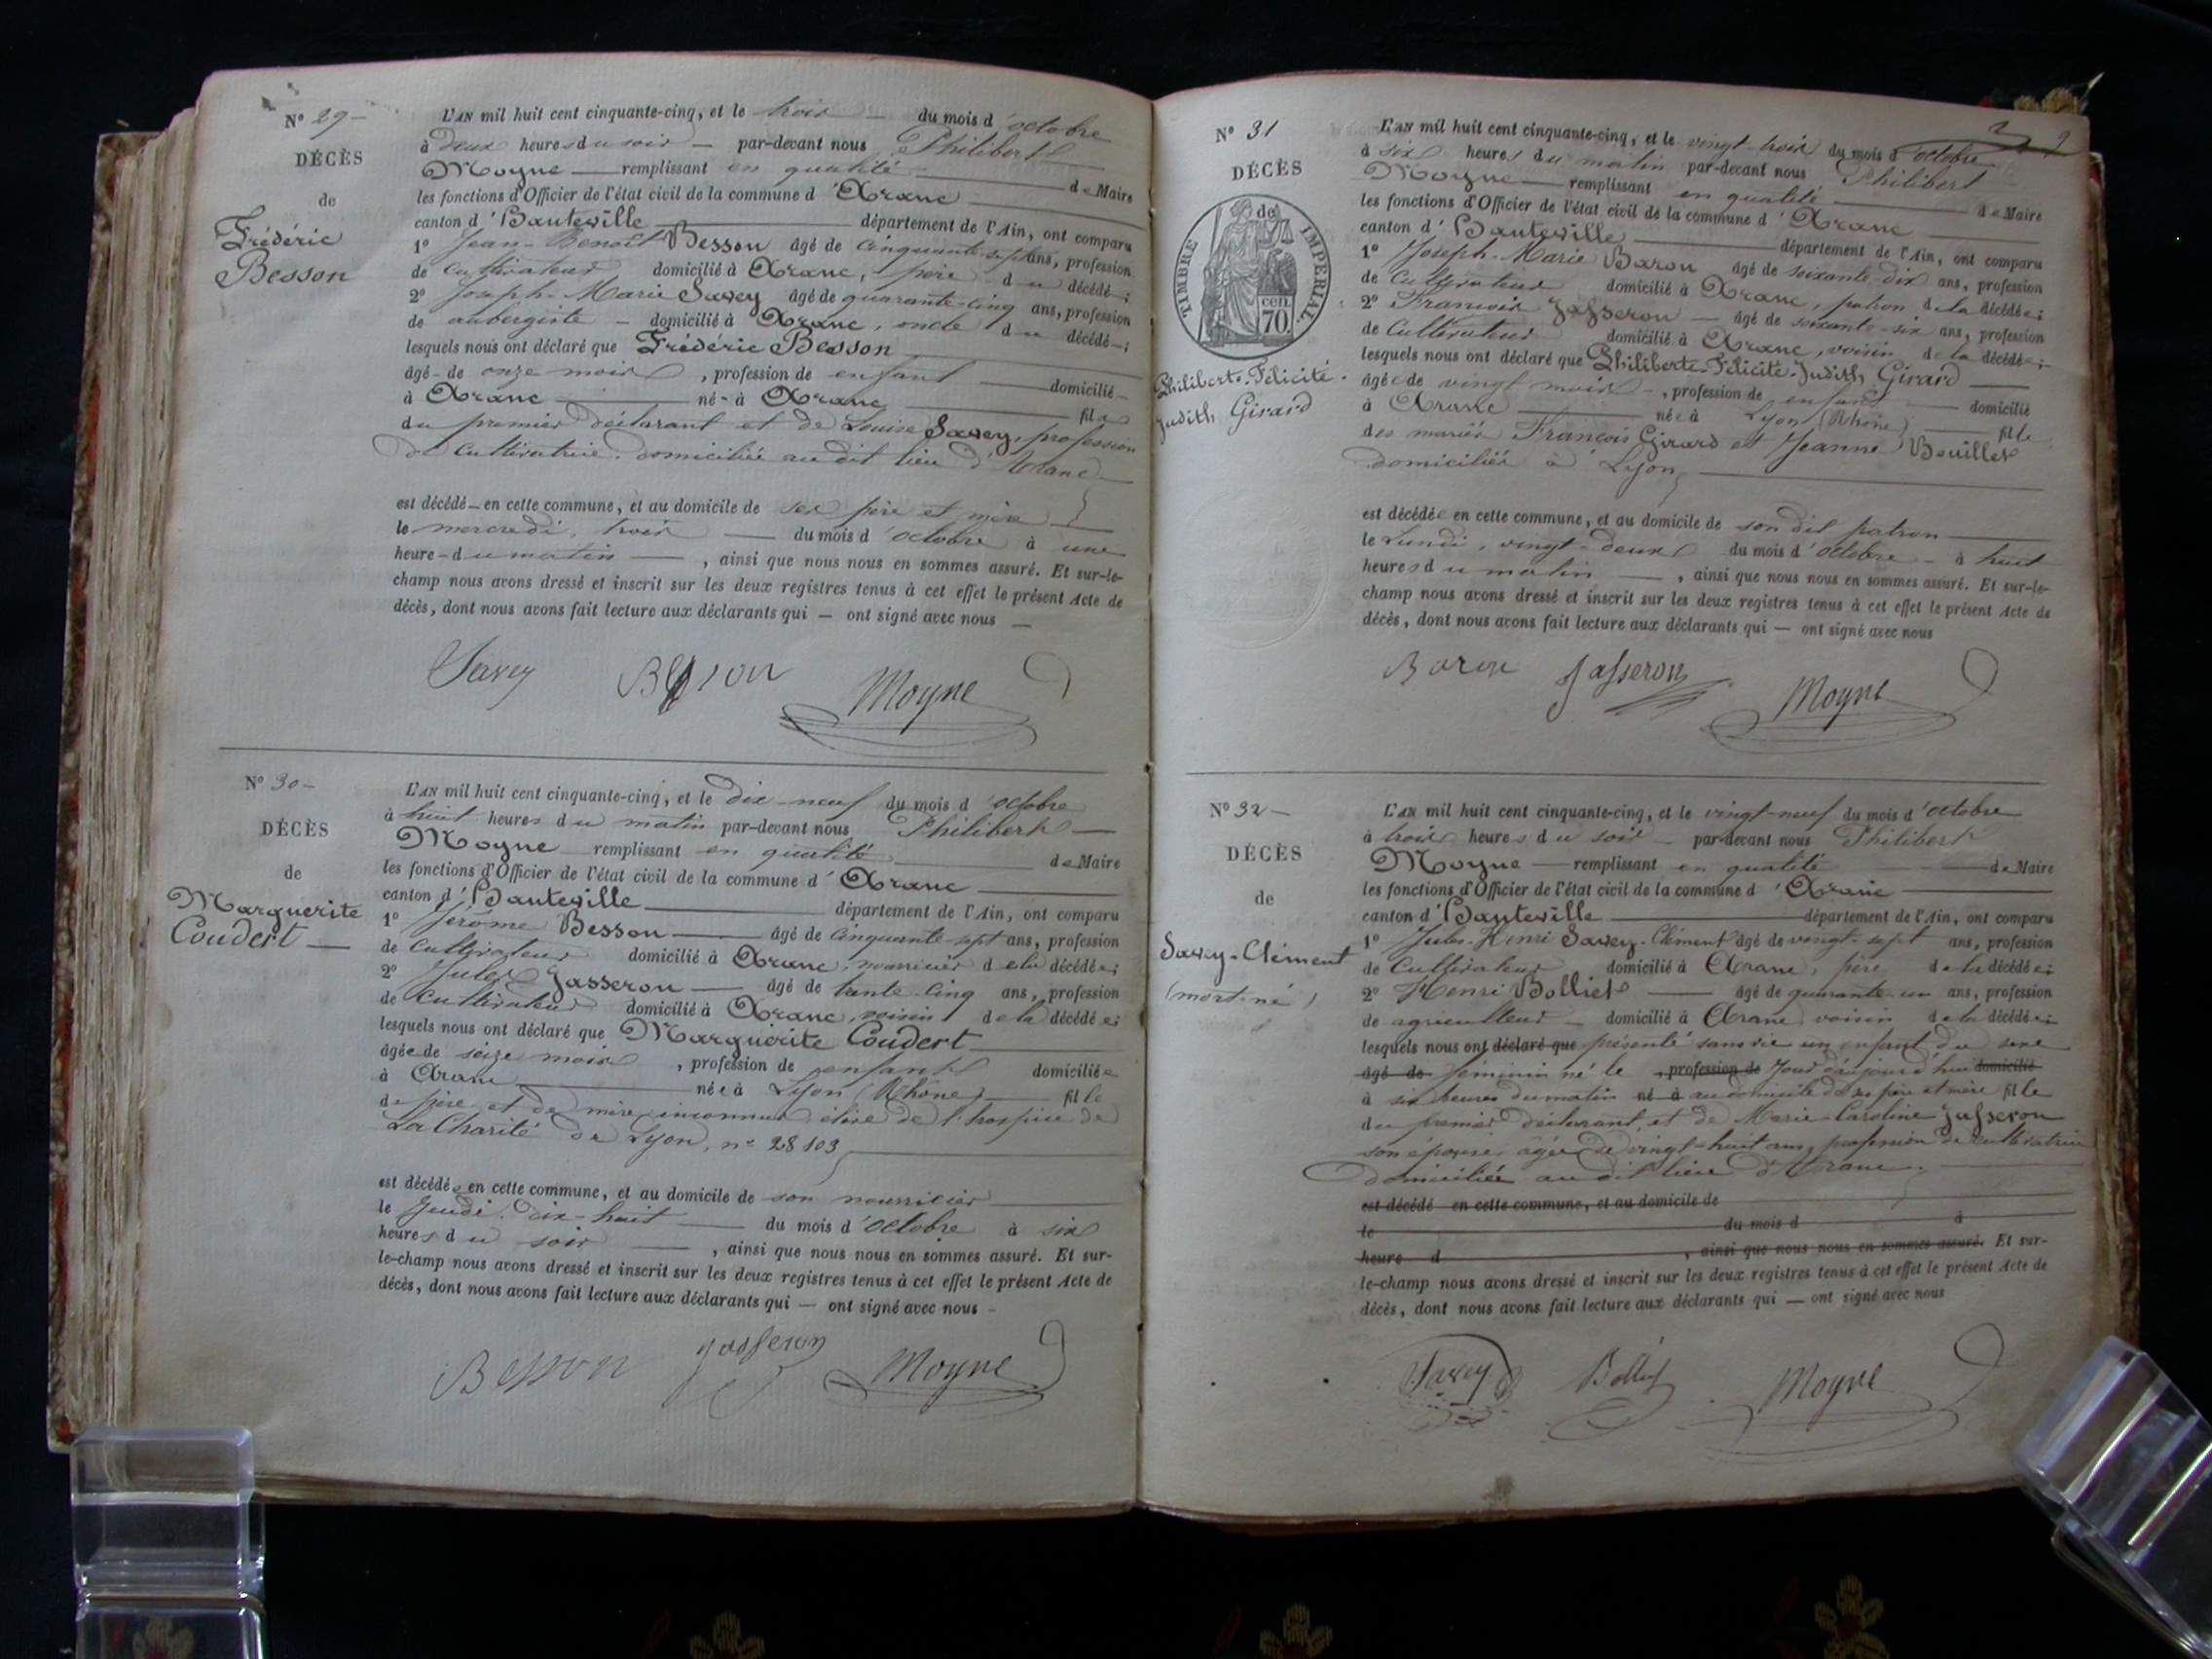 N° 29 -
DÉCÈS
de
Frédéric
Besson
L'AN mil huit cent cinquante-cinq, et le trois du mois d'octobre
à deux heures du soir — par-devant nous Philibert
Moyne — remplissant en qualité de Maire
les fonctions d'Officier de l'état civil de la commune d'Aranc
canton d'Hauteville département de l'Ain, ont comparu
1° Jean-Benoît Besson âgé de cinquante-sept ans, profession
de cultivateur domicilié à Aranc, père du décédé ;
2° Joseph-Marie Savey âgé de quarante-cinq ans, profession
de aubergiste — domicilié à Aranc, oncle du décédé — ;
lesquels nous ont déclaré que Frédéric Besson
âgé - de onze mois , profession de enfant domicilié -
à Aranc né - à Aranc fils
du premier déclarant et de Louise Savey, profession
de cultivatrice, domiciliée au dit lieu d'Aranc
est décédé — en cette commune, et au domicile de ses père et mère
le mercredi, trois du mois d'octobre à une
heure - du matin — , ainsi que nous nous en sommes assuré. Et sur-le-
champ nous avons dressé et inscrit sur les deux registres tenus à cet effet le présent Acte de
décès, dont nous avons fait lecture aux déclarants qui — ont signé avec nous —
Savey Besson Moyne
N° 30 -
DÉCÈS
de
Marguerite
Coudert —
L'AN mil huit cent cinquante-cinq, et le dix-neuf du mois d'octobre
à huit heures du matin par-devant nous Philibert —
Moyne remplissant en qualité de Maire
les fonctions d'Officier de l'état civil de la commune d'Aranc
canton d'Hauteville département de l'Ain, ont comparu
1° Jérôme Besson — âgé de cinquante-sept ans, profession
de cultivateur domicilié à Aranc, nourricier de la décédée ;
2° Jules Jasseron — âgé de trente-cinq ans, profession
de cultivateur domicilié à Aranc, voisin de la décédée ;
lesquels nous ont déclaré que Marguerite Coudert
âgée de seize mois , profession de enfant domiciliée
à Aranc née à Lyon (Rhône) fille
de père et de mère inconnus élève de l'hospice de
La Charité de Lyon, n° 28103
est décédée en cette commune, et au domicile de son nourricier
le jeudi, dix-huit du mois d'octobre à six
heures du soir — , ainsi que nous nous en sommes assuré. Et sur-
le-champ nous avons dressé et inscrit sur les deux registres tenus à cet effet le présent Acte de
décès, dont nous avons fait lecture aux déclarants qui — ont signé avec nous -
Besson Jasseron Moyne
N° 31
DÉCÈS
de
TIMBRE IMPERIAL.
cen.
70.
Philiberte-Félicité-
Judith Girard
L'AN mil huit cent cinquante-cinq, et le vingt-trois du mois d'octobre
à six heures du matin par-devant nous Philibert
Moyne — remplissant en qualité de Maire
les fonctions d'Officier de l'état civil de la commune d'Aranc
canton d'Hauteville département de l'Ain, ont comparu
1° Joseph-Marie Baron âgé de soixante-dix ans, profession
de cultivateur domicilié à Aranc, patron de la décédée ;
2° François Jasseron — âgé de soixante-six ans, profession
de cultivateur domicilié à Aranc, voisin de la décédée ;
lesquels nous ont déclaré que Philiberte-Félicité-Judith Girard
âgée de vingt mois - , profession de enfant domicilié
à Aranc née à Lyon (Rhône) fille
des mariés François Girard et Jeanne Bouillet
domiciliés à Lyon
est décédée en cette commune, et au domicile de son dit patron
le lundi, vingt-deux du mois d'octobre - à huit
heures du matin — , ainsi que nous nous en sommes assuré. Et sur-le-
champ nous avons dressé et inscrit sur les deux registres tenus à cet effet le présent Acte de
décès, dont nous avons fait lecture aux déclarants qui — ont signé avec nous
Baron Jasseron Moyne
N° 32 -
DÉCÈS
de
Savey-Clément
(mort né)
L'AN mil huit cent cinquante-cinq, et le vingt-neuf du mois d'octobre
à trois heures du soir - par-devant nous Philibert
Moyne — remplissant en qualité de Maire
les fonctions d'Officier de l'état civil de la commune d'Aranc
canton d'Hauteville département de l'Ain, ont comparu
1° Jules-Henri Savey-Clément âgé de vingt-sept ans, profession
de cultivateur domicilié à Aranc, père de la décédée ;
2° Henri Bolliet — âgé de quarante-un ans, profession
de agriculteur — domicilié à Aranc, voisin de la décédée ;
lesquels nous ont déclaré que présenté sans vie un enfant du sexe
âgé de féminin né le , profession de jour d'aujourd'hui domicilié
à six heures du matin né à au domicile de ses père et mère fille
du premier déclarant, et de Marie-Caroline Jasseron
son épouse, âgée de vingt-huit ans, profession de cultivatrice
domiciliée au dit lieu d'Aranc
est décédé en cette commune, et au domicile de
le du mois d à
heure d , ainsi que nous nous en sommes assuré. Et sur-
le-champ nous avons dressé et inscrit sur les deux registres tenus à cet effet le présent Acte de
décès, dont nous avons fait lecture aux déclarants qui — ont signé avec nous
Savey Bolliet Moyne